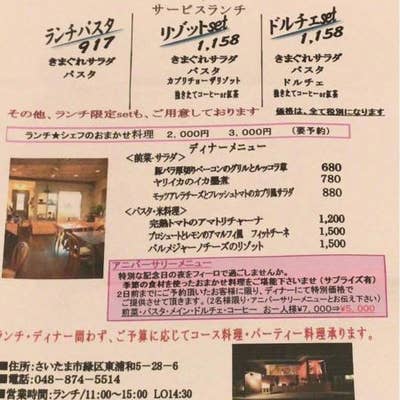 サービスランチ
ランチパスタ
917
きまぐれサラダ
パスタ
リゾットset
1,158
きまぐれサラダ
パスタ
カプリチョーザリゾット
挽きたてコーヒーor紅茶
ドルチェset
1,158
きまぐれサラダ
パスタ
ドルチェ
挽きたてコーヒーor紅茶
その他、ランチ限定setも、ご用意しております
価格は、全て税別になります
ランチ★シェフのおまかせ料理 2,000円 3,000円 (要予約)
ディナーメニュー
<前菜・サラダ>
豚バラ厚切りベーコンのグリルとルッコラ草 680
ヤリイカのイカ墨煮 780
モッツアレラチーズとフレッシュトマトのカプリ風サラダ 880
<パスタ・米料理>
完熟トマトのアマトリチャーナ 1,200
プロシュートとレモンのアマルフィ風 フィットチーネ 1,500
パルメジャーノチーズのリゾット 1,500
アニバーサリーメニュー
特別な記念日の夜をフィーロで過ごしませんか。
季節の食材を使ったおまかせ料理をご堪能下さいませ(サプライズ有)
2日前までにご予約頂いたお客様に限り、ディナーにて特別価格で
ご提供させて頂きます。(2名様限り・アニバーサリーメニューとお伝え下さい)
前菜・パスタ・メイン・ドルチェ・コーヒー お一人様¥7,000⇒¥5,000
ランチ・ディナー問わず、ご予算に応じてコース料理・パーティー料理承ります。
■住所:さいたま市緑区東浦和5-28-6
■電話:048-874-5514
■時間:ランチ/11:00~15:00 LO14:30